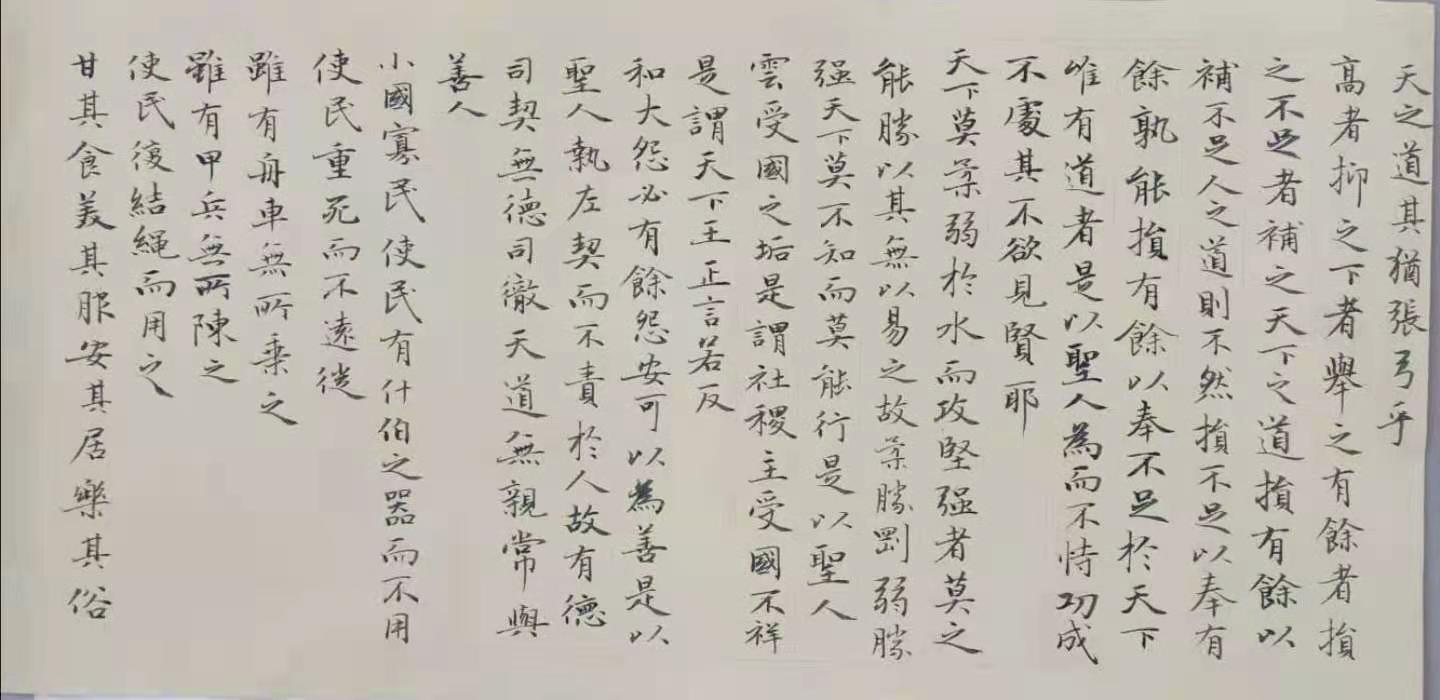 天之道其猶張弓乎
高者抑之下者舉之有餘者損
之不足者補之天下之道損有餘以
補不足人之道則不然損不足以奉有
餘孰能損有餘以奉不足於天下
唯有道者是以聖人為而不恃功成
不處其不欲見賢耶
天下莫柔弱於水而攻堅强者莫之
能勝以其無以易之故柔勝剛弱勝
强天下莫不知而莫能行是以聖人
雲受國之垢是謂社稷主受國不祥
是謂天下王正言若反
和大怨必有餘怨安可以為善是以
聖人執左契而不責於人故有德
司契無德司徹天道無親常與
善人
小國寡民使民有什伯之器而不用
使民重死而不遠徙
雖有舟車無所乘之
雖有甲兵無所陳之
使民復結繩而用之
甘其食美其服安其居樂其俗